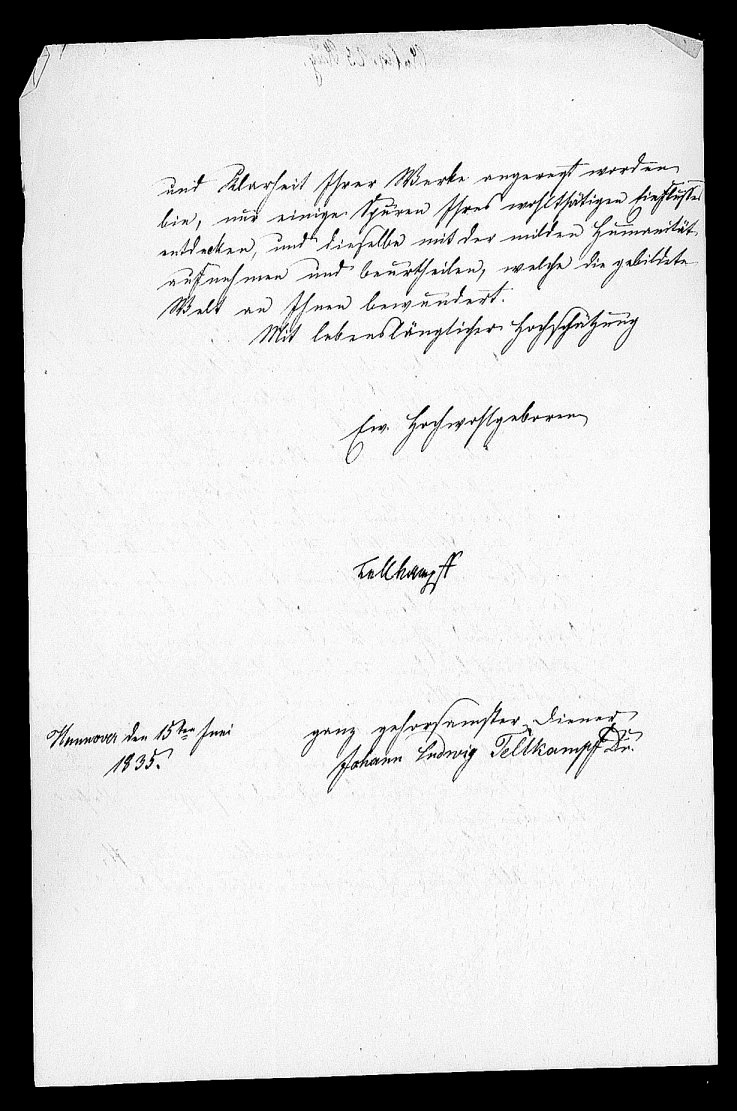 und Klarheit Ihrer Werke angeregt worden
bin, nur einige Spuren Ihres wohlthätigen Einflusses
entdecken, und dieselbe mit der milden Humanität
aufnehmen und beurtheilen, welche die gebildete
Welt an Ihnen bewundert.
Mit lebenslänglicher Hochschätzung
Ew. Hochwohlgeboren
Tellkampff
ganz gehorsamster Diener
Hannover den 15ten Juni
Johann Ludwig Tellkampff Dr.
1835.